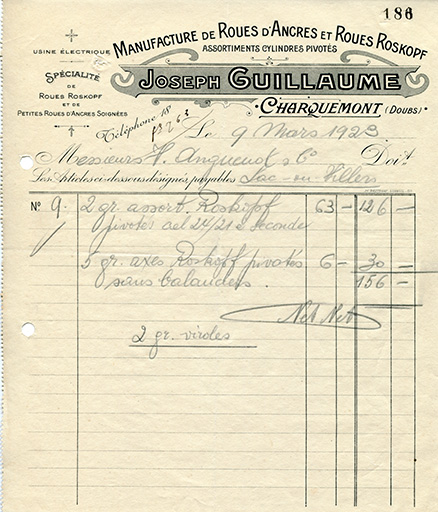 186
MANUFACTURE DE ROUES D'ANCRES ET ROUES ROSKOPF
ASSORTIMENTS CYLINDRES PIVOTÉS
USINE ÉLECTRIQUE
SPÉCIALITÉ
DE
ROUES ROSKOPF
ET DE
PETITES ROUES D'ANCRES SOIGNÉES
JOSEPH GUILLAUME
CHARQUEMONT (DOUBS)
Téléphone 18
Le 9 Mars 1923
Messieurs H. Anguenot & Cº Doit
Les Articles ci-dessous désignés payables Lac-ou-Villers
Nº 9. 2 gr. assort. Roskopf 63 – 126 –
pivotés 24/21 seconde
5 gr. axes Roskopf pivotés 6 – 30 –
sans balanciers. 156 –
Net Net
2 gr. viroles